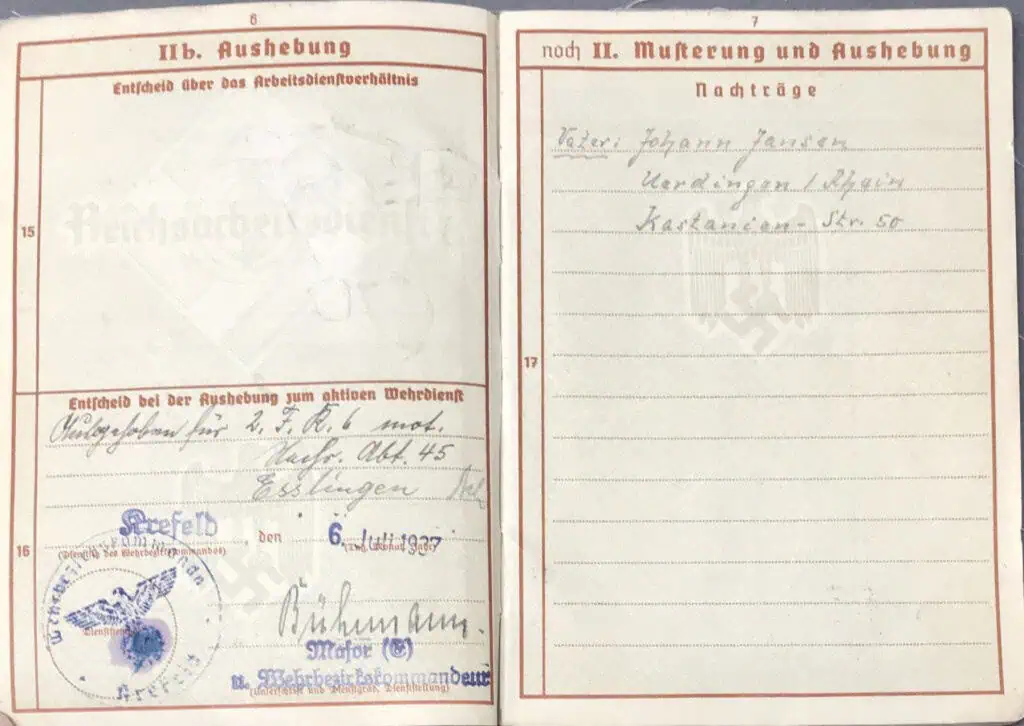 6
IIb. Aushebung
Entscheid über das Arbeitsdienstverhältnis
15
Reichsarbeitsdienst
Entscheid bei der Aushebung zum aktiven Wehrdienst
Ausgehoben für 2. F. K. 6 mot.
Nachr. Abt. 45
Esslingen
Krefeld, den 6. Juli 1937
(Dienstsitz des Wehrbezirkskommandos) (Tag, Monat, Jahr)
16
Wehrbezirkskommando
Krefeld
Bühmann.
Major (E)
u. Wehrbezirkskommandeur
(Unterschrift und Dienstgrad, Dienststellung)
7
noch II. Musterung und Aushebung
Nachträge
Vater: Johann Jansen
Uerdingen / Rhein
Kastanien- Str. 50
17